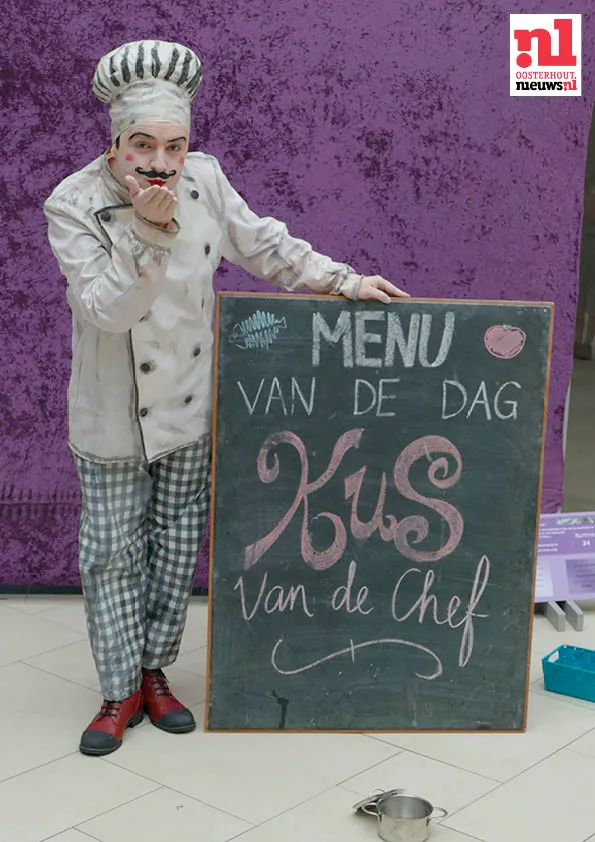 .nl
OOSTERHOUT.
nieuws.nl
MENU
VAN DE DAG
KuS
Van de Chef
34